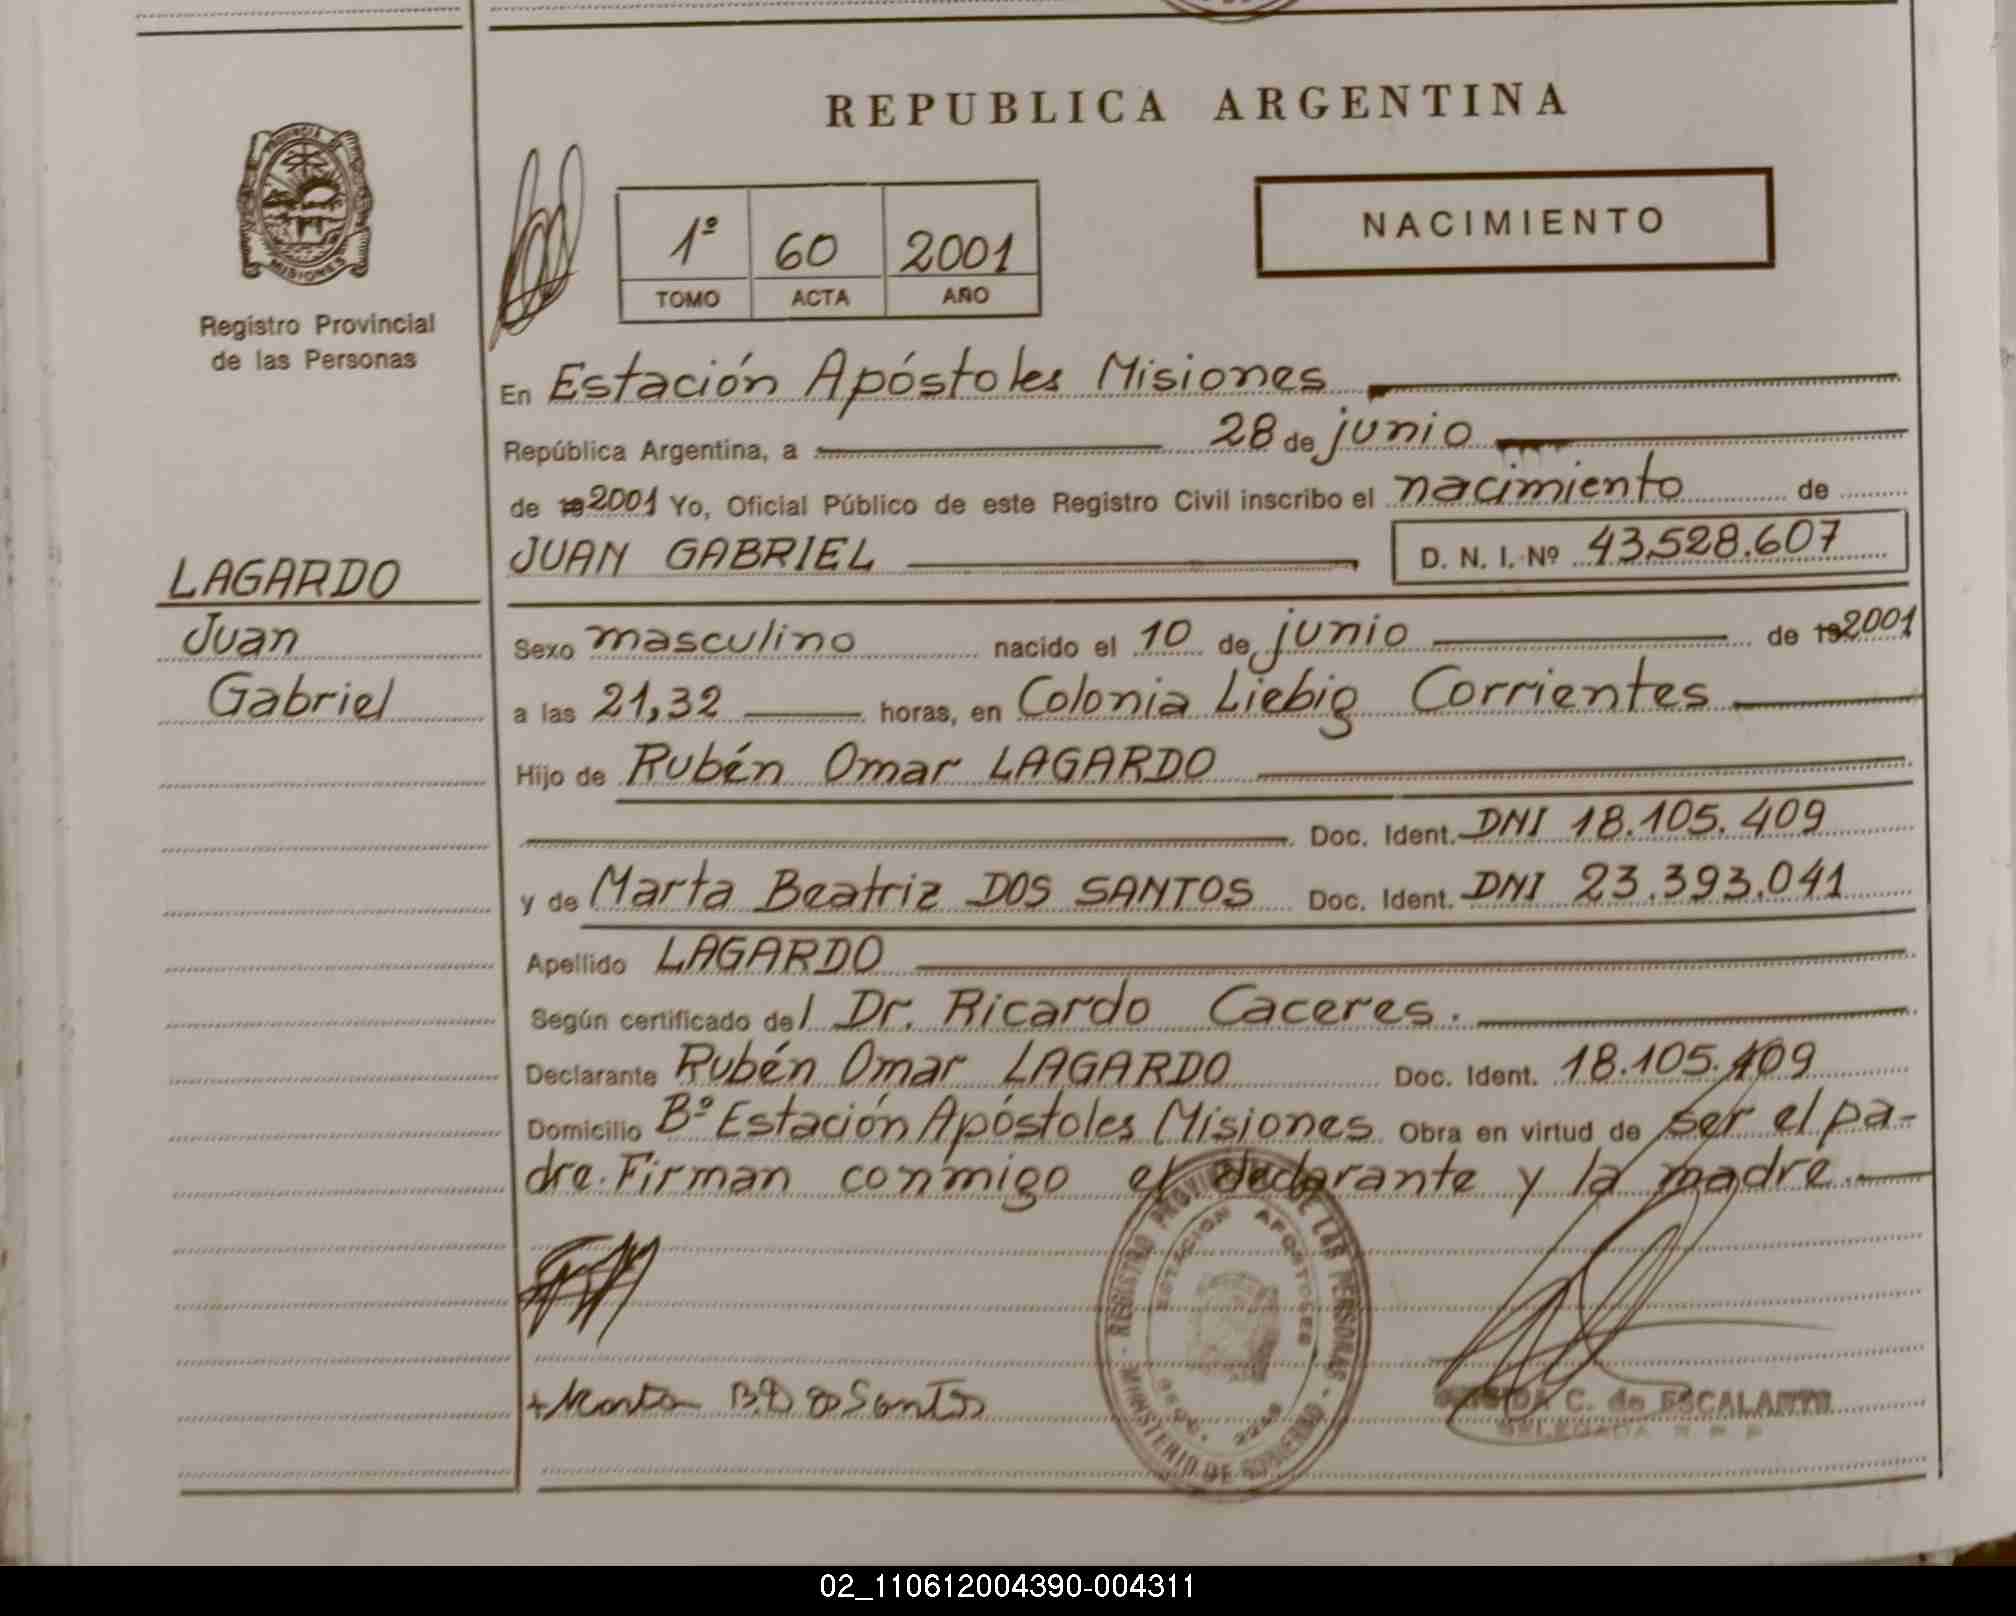 REPUBLICA ARGENTINA
PROVINCIA
MISIONES
Registro Provincial
de las Personas
1º 60 2001
TOMO ACTA AÑO
NACIMIENTO
En Estación Apóstoles Misiones
República Argentina, a 28 de junio
de 19 2001 Yo, Oficial Público de este Registro Civil inscribo el nacimiento de
JUAN GABRIEL D. N. I. Nº 43.528.607
LAGARDO
Juan
Gabriel
Sexo masculino nacido el 10 de junio de 19 2001
a las 21,32 horas, en Colonia Liebig Corrientes
Hijo de Rubén Omar LAGARDO
Doc. Ident. DNI 18.105.409
y de Marta Beatriz DOS SANTOS Doc. Ident. DNI 23.393.041
Apellido LAGARDO
Según certificado del Dr. Ricardo Caceres.
Declarante Rubén Omar LAGARDO Doc. Ident. 18.105.409
Domicilio Bº Estación Apóstoles Misiones Obra en virtud de ser el pa-
dre. Firman conmigo el declarante y la madre.
REGISTRO PROVINCIAL DE LAS PERSONAS - MINISTERIO DE GOBIERNO -
ESTACION APOSTOLES
C. de ESCALANTE
DELEGADA R P P
02_110612004390-004311